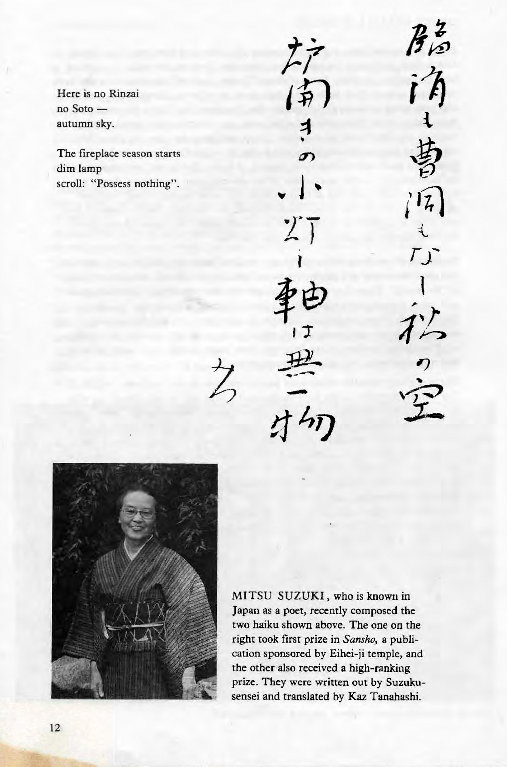 臨済も曹洞もなし秋の空
炉開きの小灯し軸は無一物
みつ
Here is no Rinzai
no Soto —
autumn sky.
The fireplace season starts
dim lamp
scroll: “Possess nothing”.
MITSU SUZUKI, who is known in
Japan as a poet, recently composed the
two haiku shown above. The one on the
right took first prize in Sansho, a publi-
cation sponsored by Eihei-ji temple, and
the other also received a high-ranking
prize. They were written out by Suzuku-
sensei and translated by Kaz Tanahashi.
12